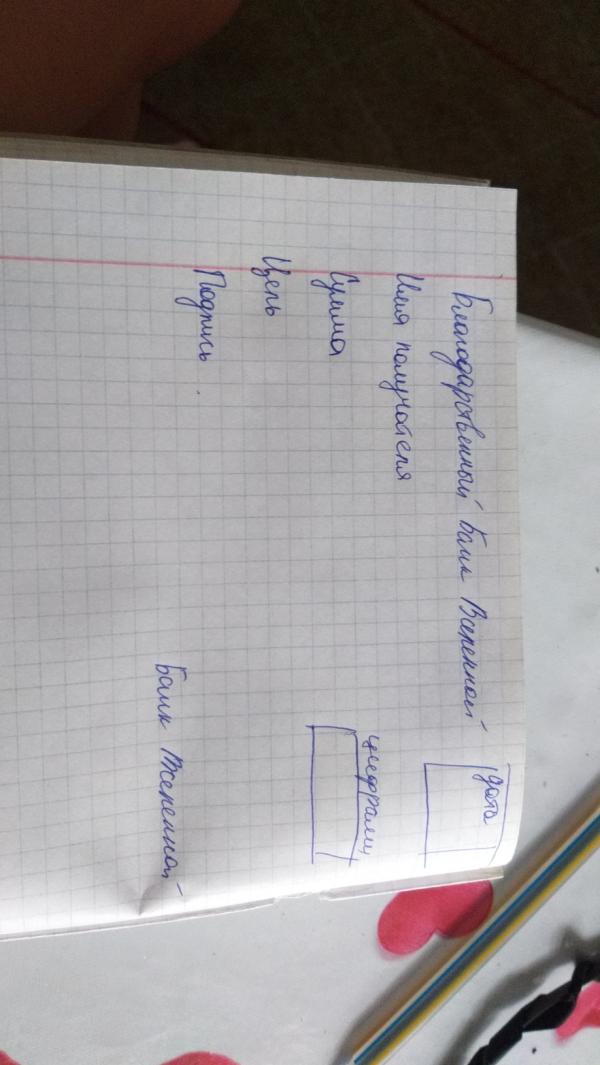 Благодарственный Банк Вселенной
дата
Имя получателя
цифрами
Сумма
Цель
Подпись
Банк Вселенной